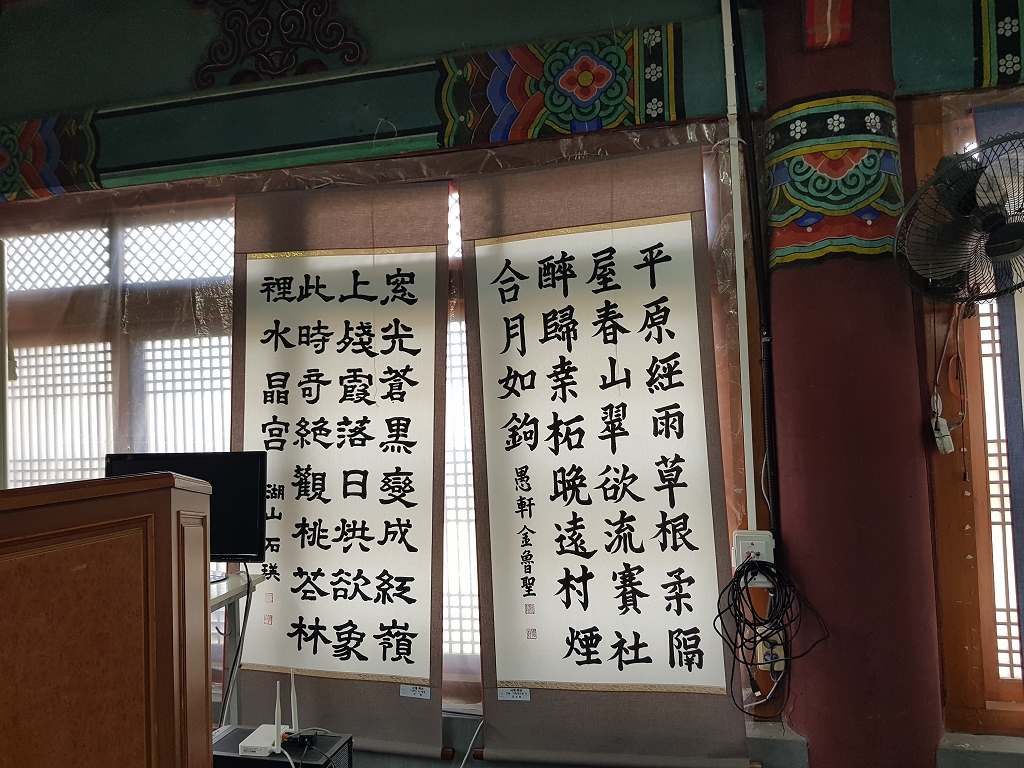 平原經雨草根柔隔
屋春山翠欲流賽社
醉歸桒柘晩遠村煙
合月如鉤
愚軒金魯聖
窓光蒼黒變成紅嶺
上殘霞落日烘欲象
此時奇絶觀桃花林
裡水晶宮
湖山石瑛